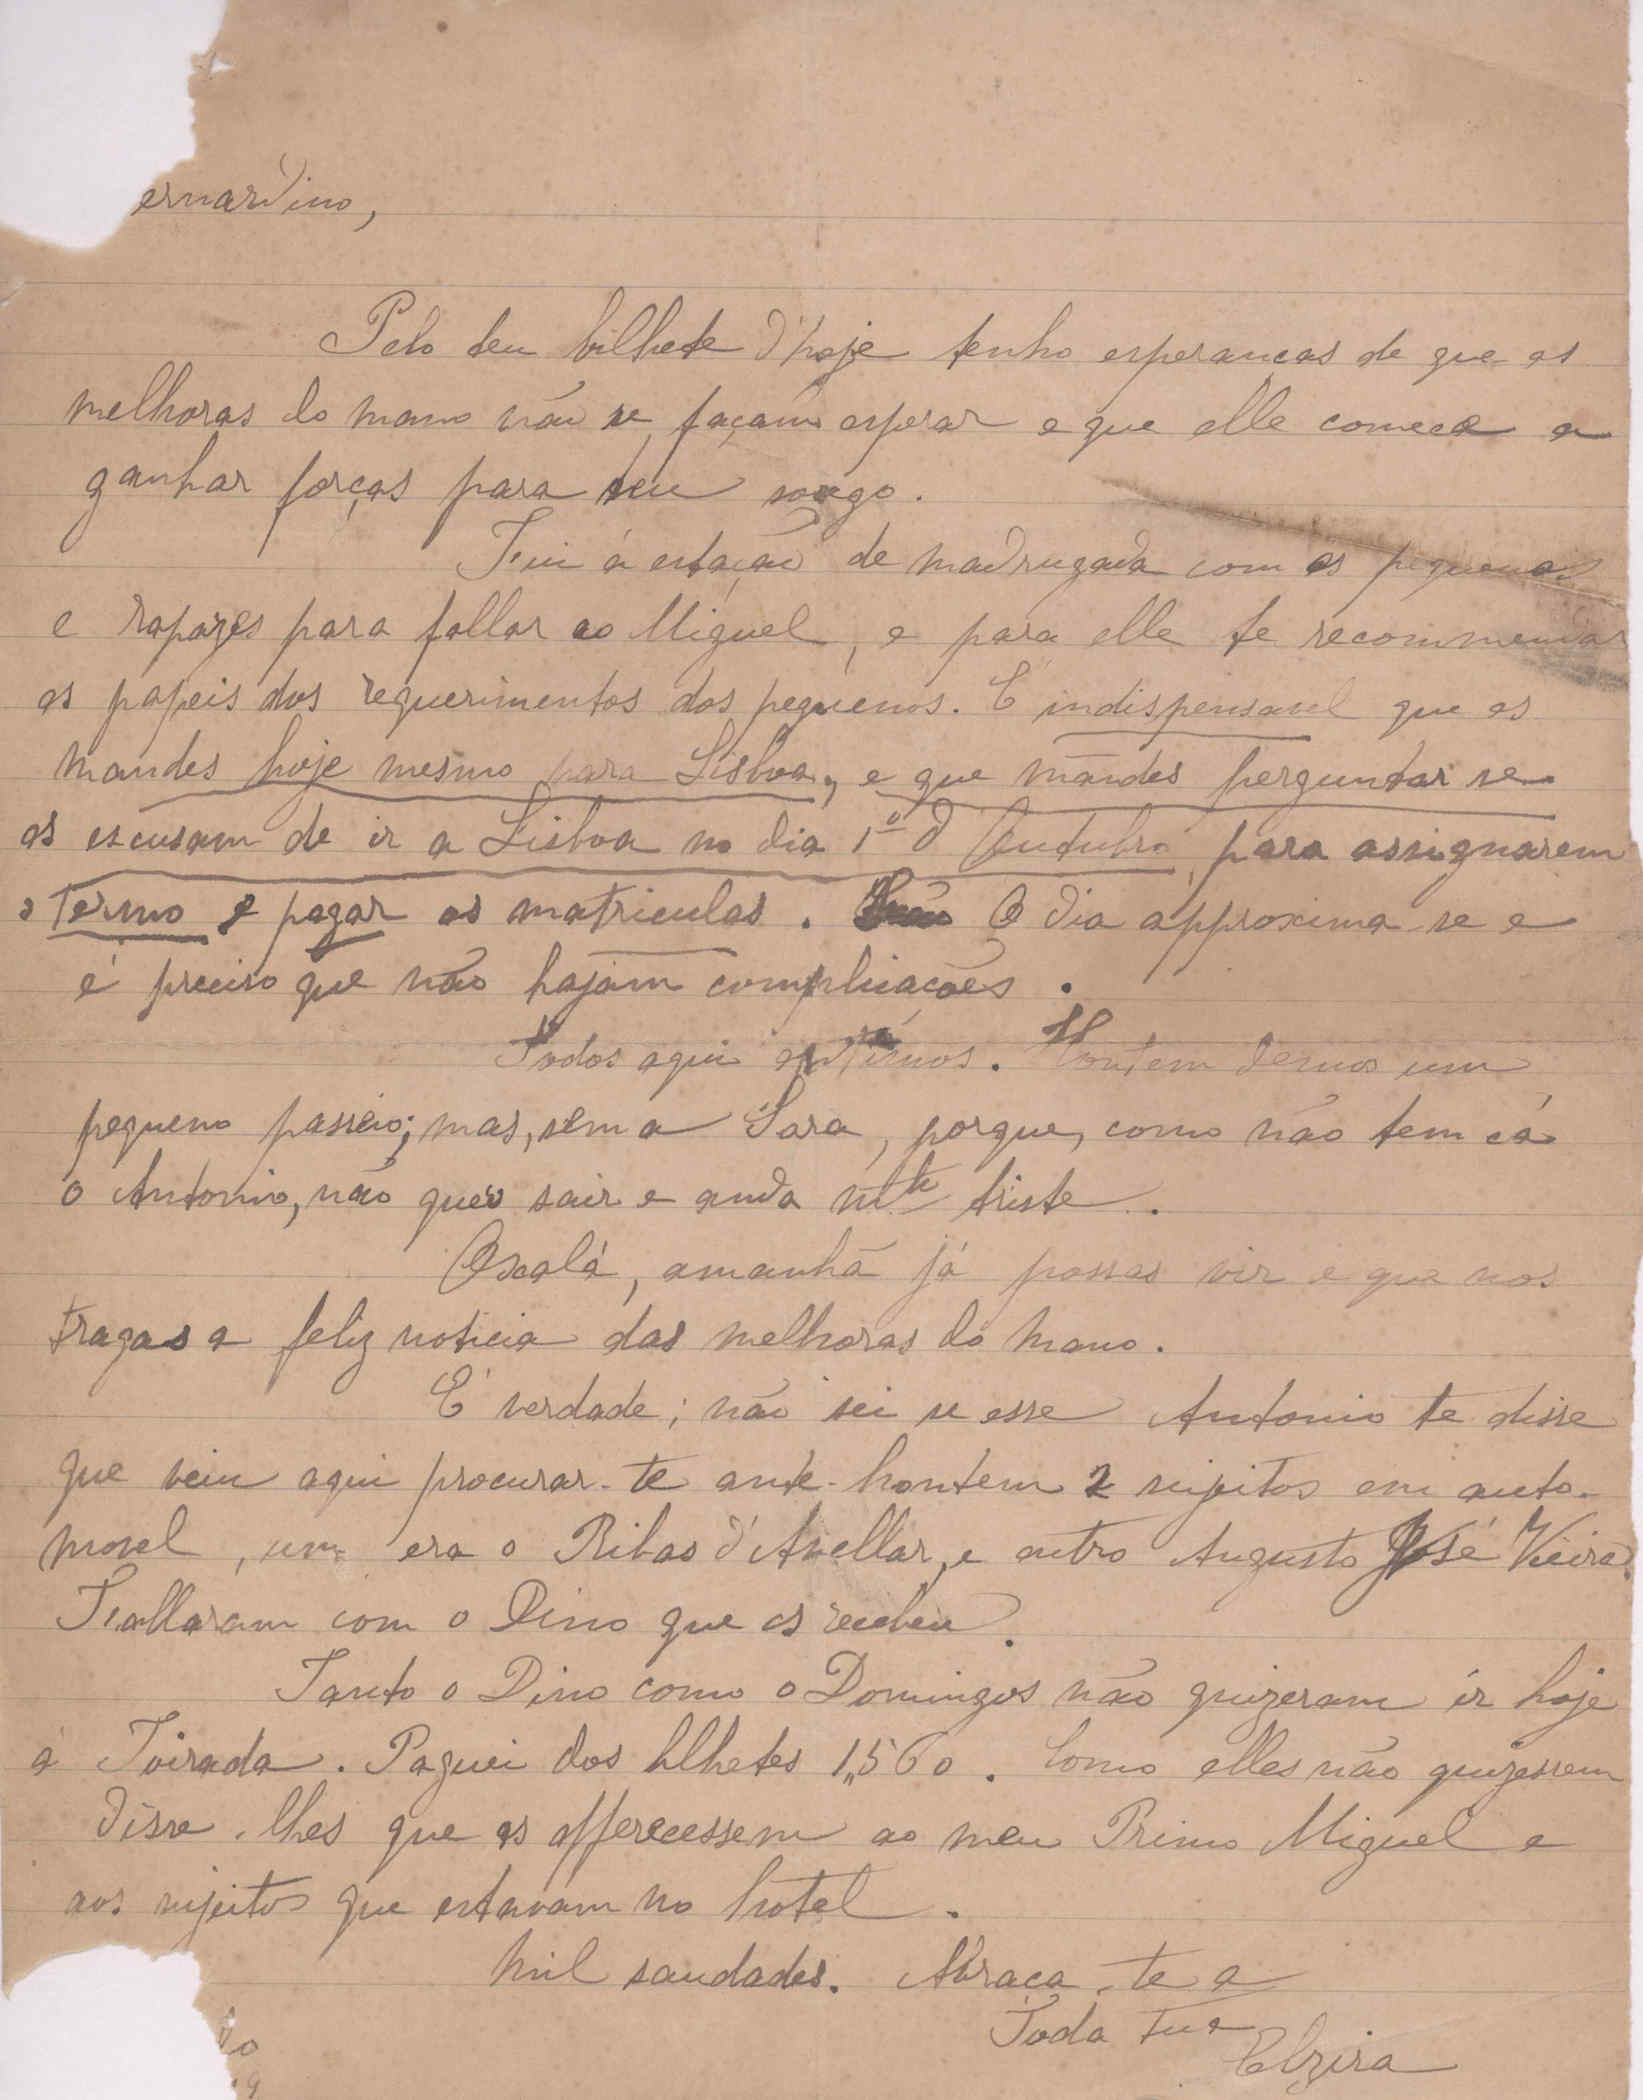 ernardino,
Pelo teu bilhete d'hoje tenho esperanças de que as
melhoras do mano não se façam esperar e que elle comece a
ganhar forças para seu socego.
Fui á estação de madrugada com os pequenos
e rapazes para fallar ao Miguel, e para elle te recommendar
os papeis dos requerimentos dos pequenos. É indispensavel que os
mandes hoje mesmo para Lisboa, e que mandes perguntar se
os escusam de ir a Lisboa no dia 1º d'Outubro para assignarem
o termo e pagar as matriculas. O dia approxima-se e
é preciso que não hajam complicações.
Todos aqui optimos. Hontem demos um
pequeno passeio; mas, sem a Sara, porque, como não tem cá
o Antonio, não quer sair e anda mto triste.
Oxalá, amanhã já possas vir e que nos
tragas a feliz noticia das melhoras do mano.
É verdade; não sei se esse Antonio te disse
que veiu aqui procurar-te ante-hontem 2 sujeitos em auto-
movel, um era o Ribas d'Avellar, e outro Augusto José Vieira.
Fallaram com o Dino que os recebeu.
Tanto o Dino como o Domingos não quizeram ir hoje
á Toirada. Paguei dos bilhetes 1,,560. Como elles não quizessem
disse-lhes que os offerecessem ao meu Primo Miguel e
aos sujeitos que estavam no hotel.
Mil saudades. Abraça-te a
Toda tua
Elzira